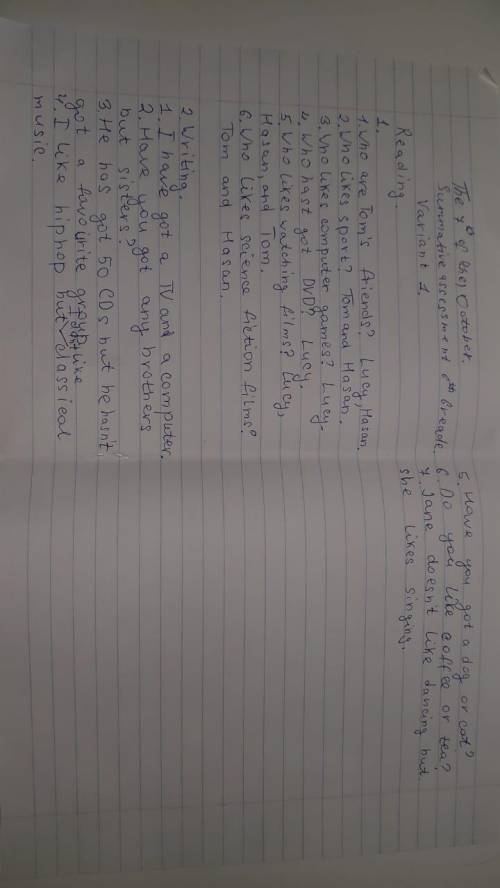 The 7th of October.
Summative assessment 6th Greade
Variant 1.
Reading.
1.
1. Who are Tom's friends? Lucy, Hasan.
2. Who likes sport? Tom and Hasan.
3. Who likes computer games? Lucy.
4. Who hast got DVD? Lucy.
5. Who likes watching films? Lucy,
Hasan, and Tom.
6. Who likes science fiction films?
Tom and Hasan.
2. Writing.
1. I have got a TV and a computer.
2. Have you got any brothers
but sisters?
3. He has got 50 CDs but he hasn't
got a favourite group.
4. I like hiphop but I don't like classical
music.
5. Have you got a dog or cat?
6. Do you like coffee or tea?
7. Jane doesn't like dancing but
she likes singing.